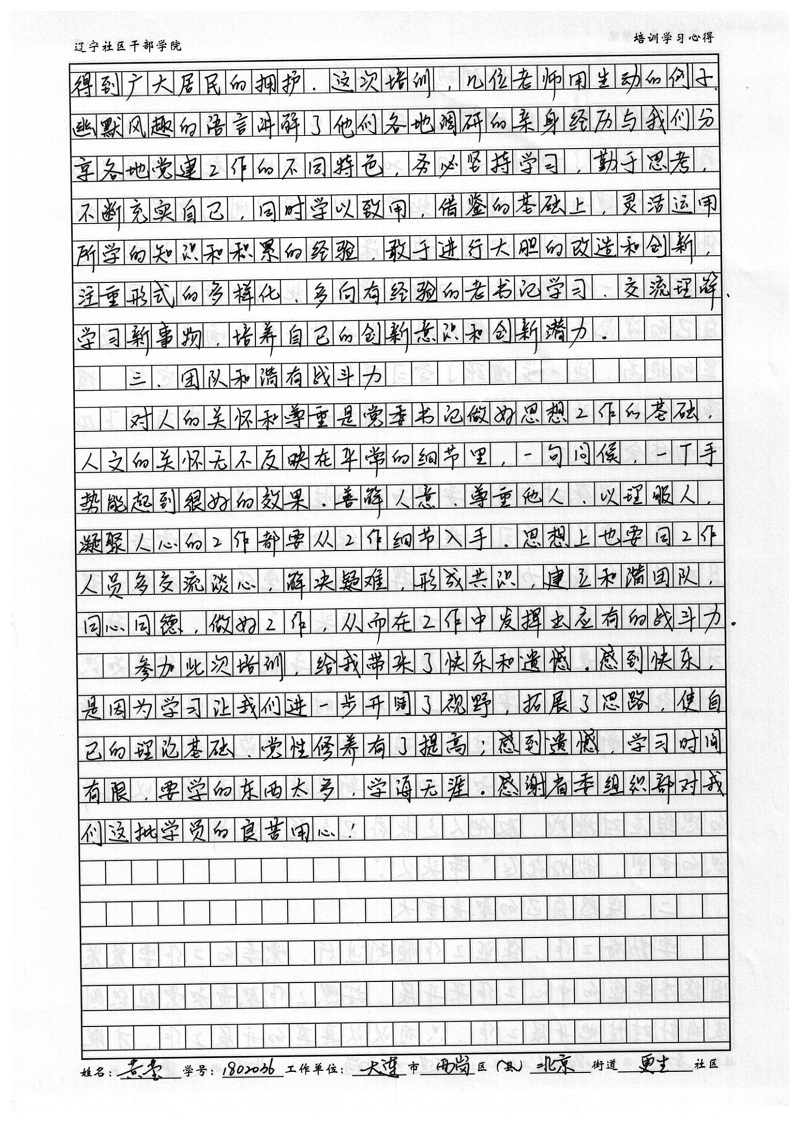 辽宁社区干部学院 培训学习心得
得到广大居民的拥护.这次培训,几位老师用生动的例子.
幽默风趣的语言讲解了他们各地调研的亲身经历与我们分
享各地党建工作的不同特色,务必坚持学习,勤于思考,
不断充实自己,同时学以致用,借鉴的基础上,灵活运用
所学的知识和积累的经验,敢于进行大胆的改造和创新,
注重形式的多样化、多向有经验的老书记学习、交流理解.
学习新事物,培养自己的创新意识和创新潜力。
三.团队和谐有战斗力
对人的关怀和尊重是党委书记做好思想工作的基础,
人文的关怀无不反映在平常的细节里,一句问候,一个手
势能起到很好的效果.善解人意、尊重他人、以理服人,
凝聚人心的工作都要从工作细节入手.思想上也要同工作
人员多交流谈心,解决疑难,形成共识,建立和谐团队,
同心同德,做好工作,从而在工作中发挥出应有的战斗力.
参加此次培训,给我带来了快乐和遗憾。感到快乐,
是因为学习让我们进一步开阔了视野,拓展了思路,使自
己的理论基础、党性修养有了提高;感到遗憾,学习时间
有限,要学的东西太多,学海无涯。感谢省委组织部对我
们这批学员的良苦用心!
姓名: 学号:1802036 工作单位: 大连 市 西岗 区(县) 北京 街道 更生 社区